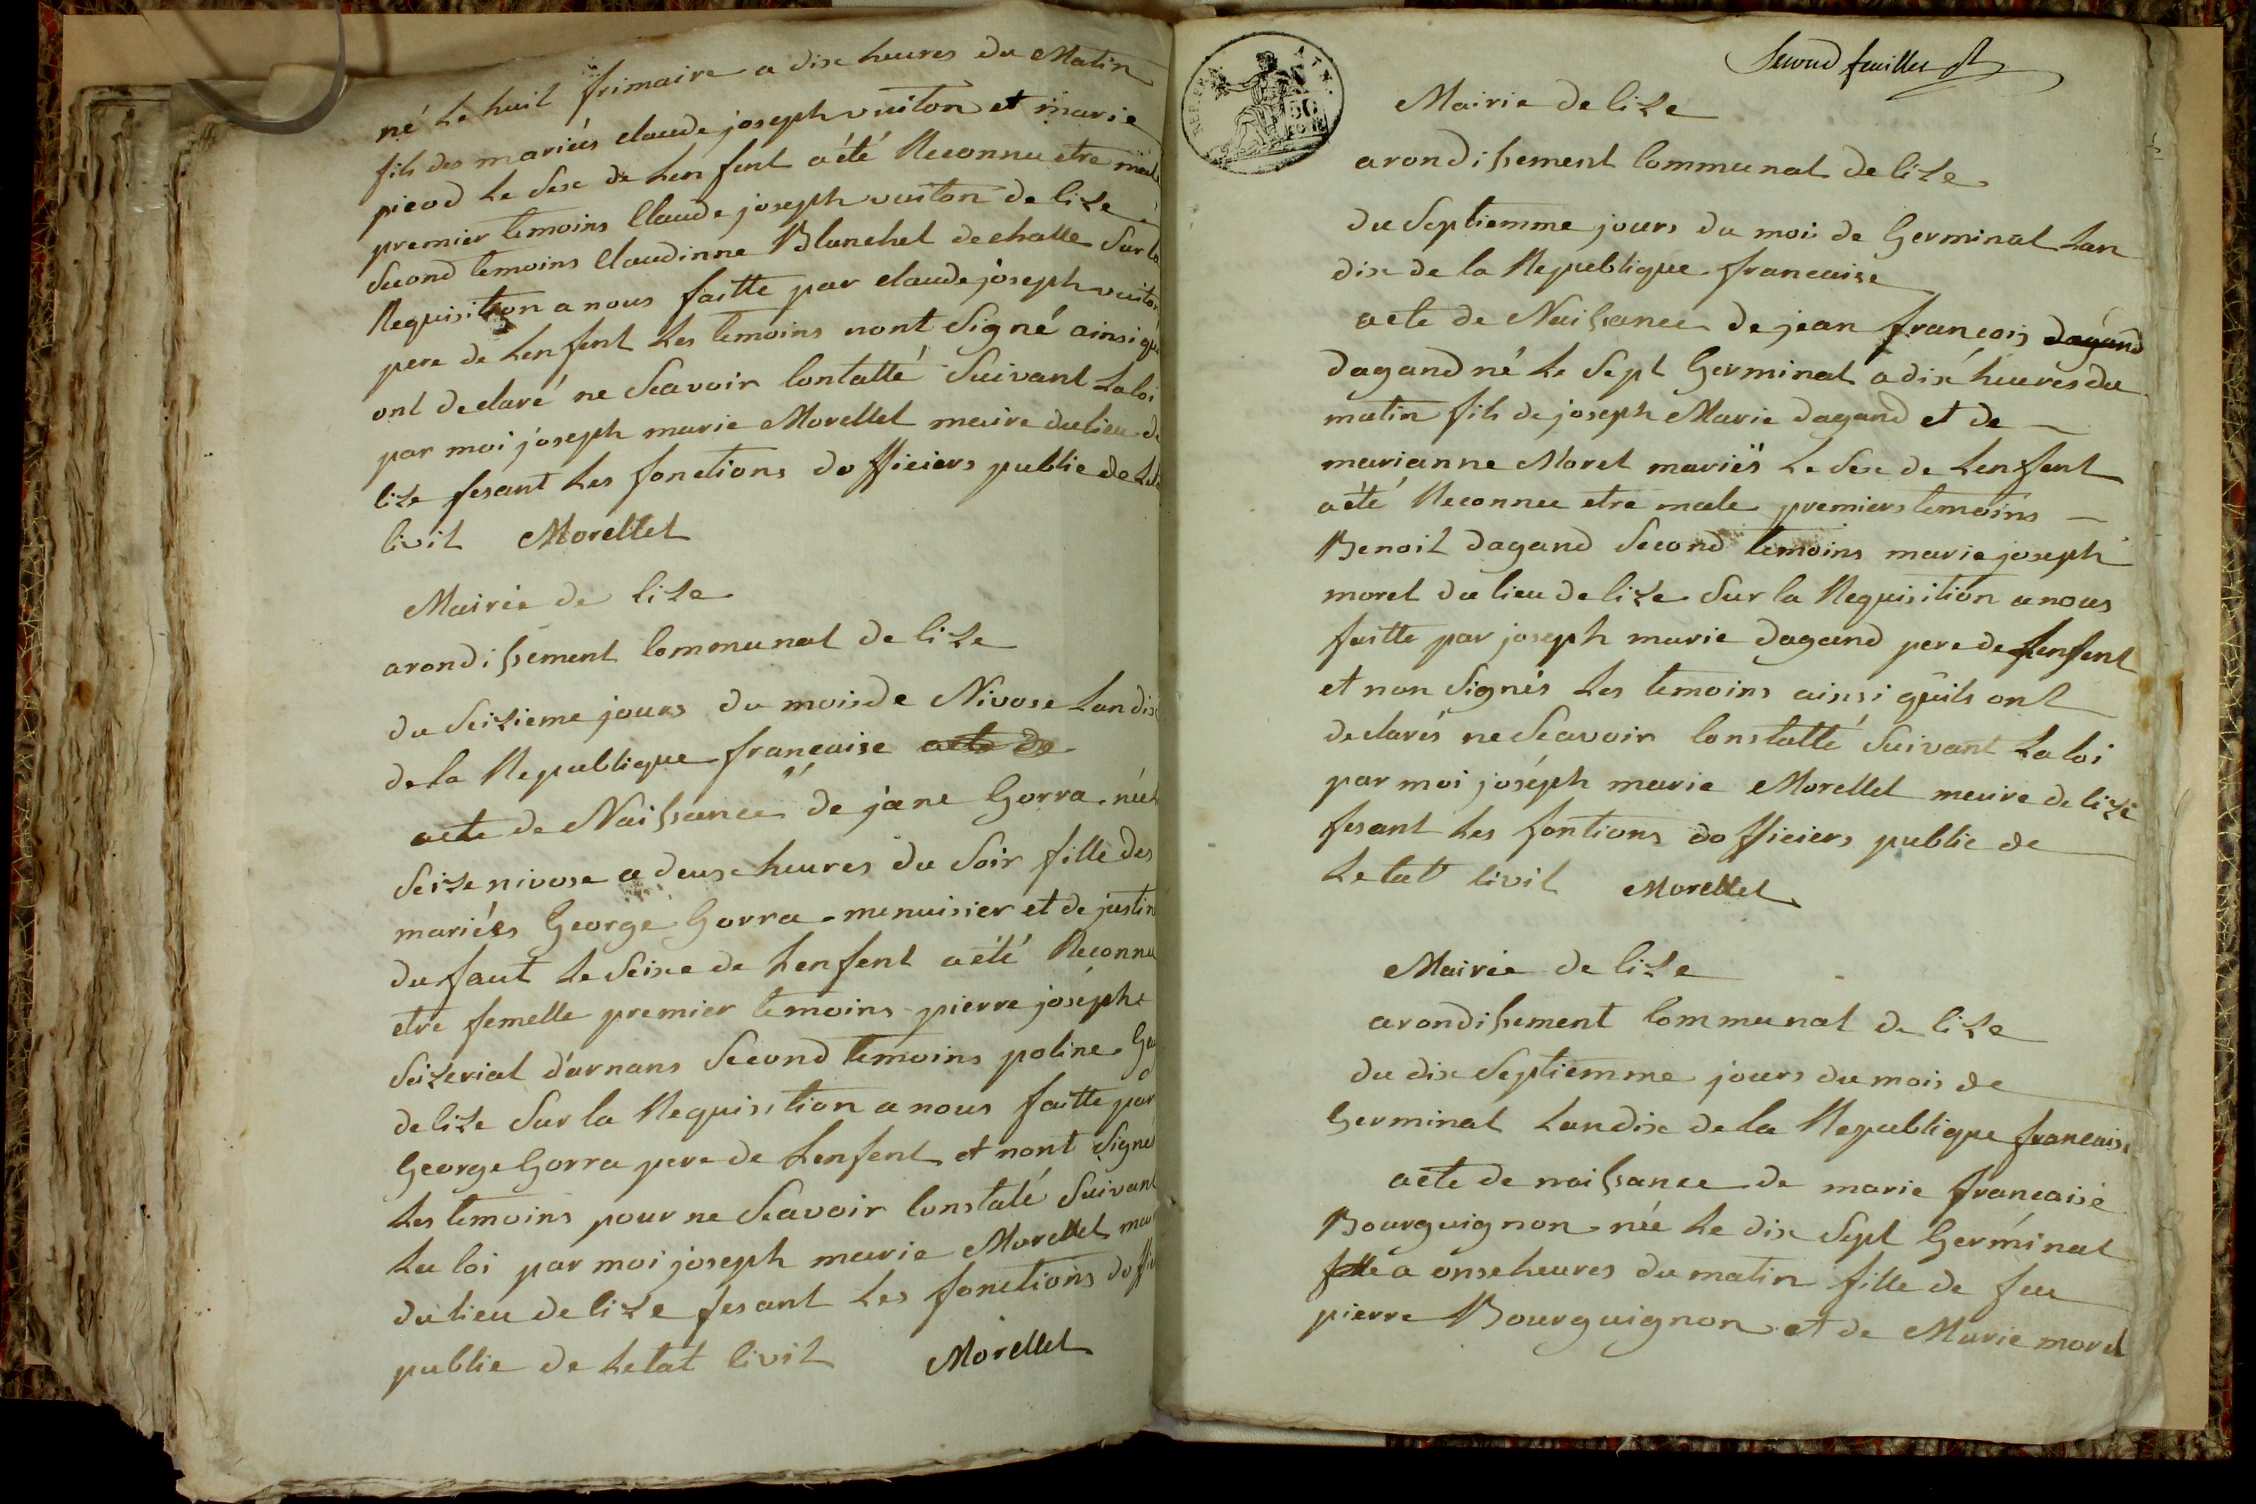 né Le huit frimaire a dix heures du Matin
fils des mariés claude joseph vuiton et marie
picod Le Sexe de Lenfent a été Reconnu etre male
premier temoins Claude joseph vuiton de lize
Second temoins Claudinne Blanchet de challe Sur la
Requisition a nous faitte par claude joseph vuiton
pere de Lenfent Les temoins nont Signé ainsi que
ont declaré ne Scavoir Contatté Suivant La loi
par moi joseph marie Morellet maire du lieu de
lize fesant Les fonctions dofficiers public de
Civil Morellet
Mairie de Lize
arondissement Communal de lize
du Seizieme jours du mois de Nivose Lan dix
de la Republique francaise acte de
acte de Naissance de jane Gorra née
Seize nivose a deux heures du Soir fille des
mariées George Gorra menuisier et de justin
dufaut Le Seixe de Lenfent a été Reconnu
etre femelle premier temoins pierre joseph
Seizeriat darnans Second temoins poline
de lize Sur la Requisition a nous faitte par
George Gorra pere de Lenfent et nont Signé
Les temoins pour ne Scavoir Constaté Suivant
La loi par moi joseph marie Morellet
du lieu de lize fesant Les fonctions doffi
public de Letat Civil Morellet
Second feuillet
REP. FRA. 50
Mairie de lize
arondissement Communal de lize
du Septiemme jours du mois de Germinal Lan
dix de la Republique francaise
acte de Naissance de jean francois dagand
dagand né Le Sept Germinal a dix heures du
matin fils de joseph Marie dagand et de
marianne Moret mariés Le Sexe de Lenfent
a été Reconnu etre male premiers temoins
Benoit dagand Second temoins marie joseph
moret du lieu de lize Sur la Requisition a nous
faitte par joseph marie dagand pere de Lenfent
et non Signés Les temoins ainsi quils ont
declarés ne Scavoir Constatté Suivant La loi
par moi joseph marie Morellet maire de lize
fesant Les fontions dofficiers public de
Letat Civil Morellet
Mairie de lize
arondissement Communal de lize
du dix Septiemme jours du mois de
Germinal Lan dix de la Republique francaise
acte de naissance de marie francaise
Bourguignon née Le dix Sept Germinal
fille a onse heures du matin fille de feu
pierre Bourguignon et de Marie morel